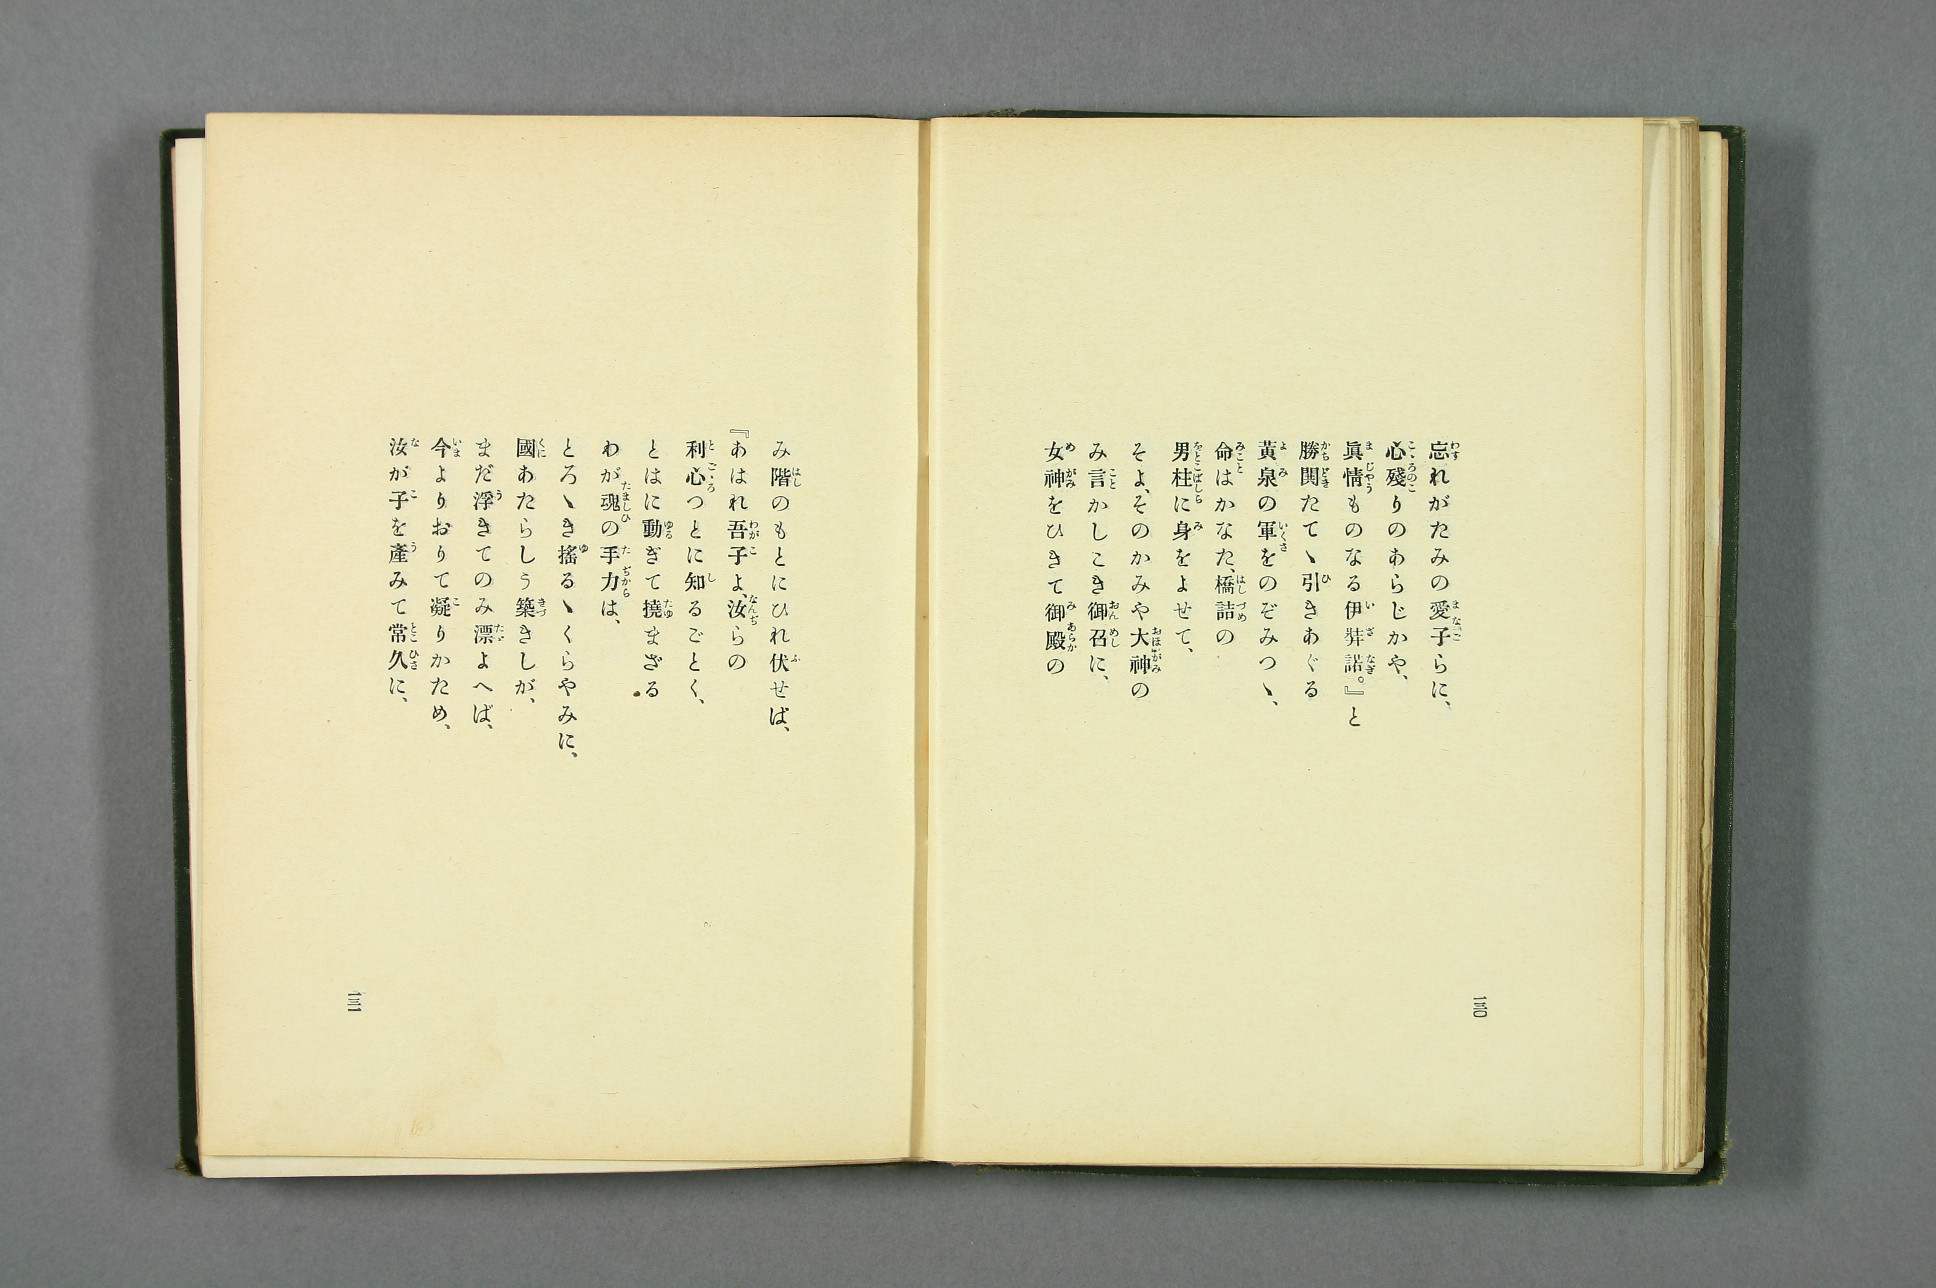 忘れがたみの愛子らに、
心殘りのあらじかや、
眞情ものなる伊弉諾。』と
勝鬨たてヽ引きあぐる
黃泉の軍をのぞみつヽ、
命はかなた、橋詰の
男柱に身をよせて、
そよ、そのかみや大神の
み言かしこき御召に、
女神をひきて御殿の
一三〇
み階のもとにひれ伏せば、
『あはれ吾子よ、汝らの
利心つとに知るごとく、
とはに動ぎて撓まざる
わが魂の手力は、
とろヽき搖るヽくらやみに、
國あたらしう築きしが、
まだ浮きてのみ漂よへば、
今よりおりて凝りかため、
汝が子を產みて常久に、
一三一